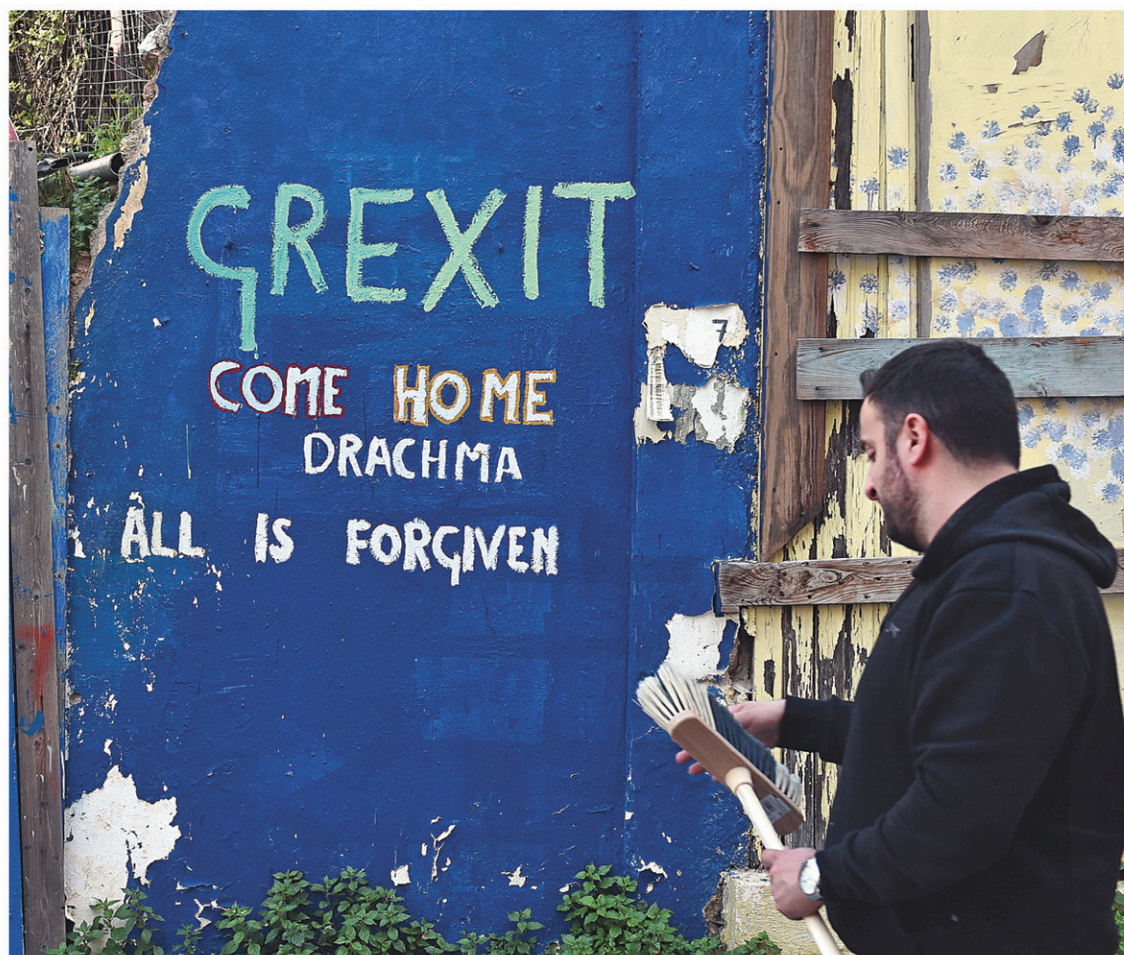 GREXIT
COME HOME
DRACHMA
ALL IS FORGIVEN
7